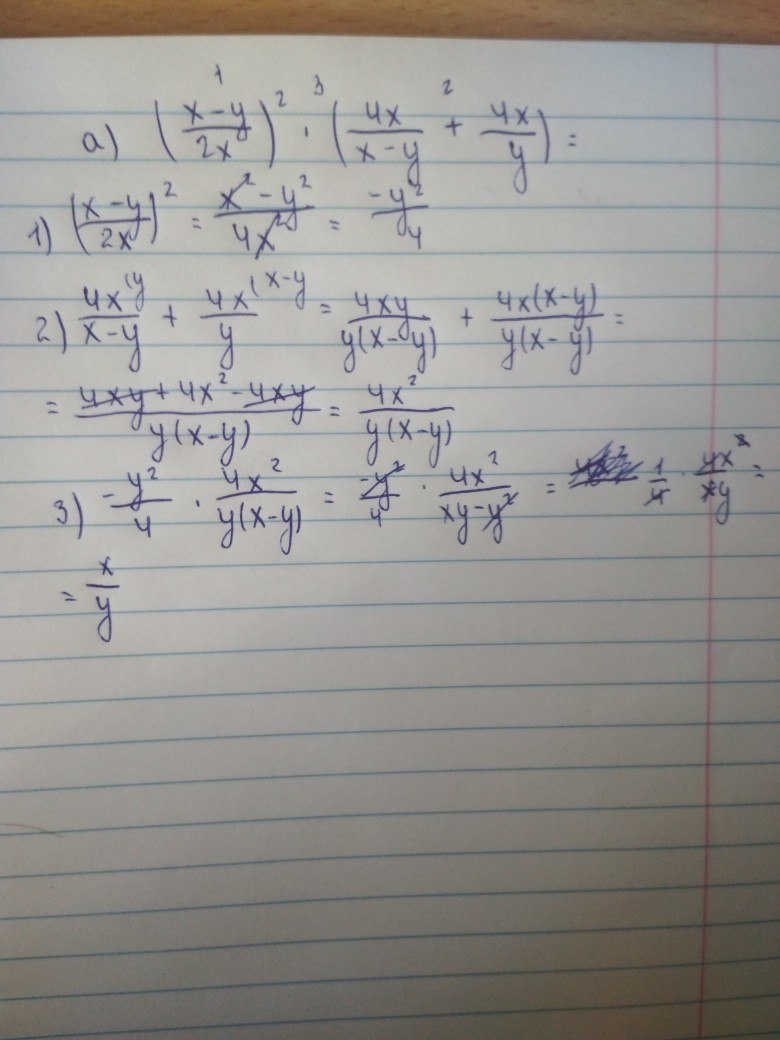 а) ((x-y)/2x)² · (4x/(x-y) + 4x/y) =
1 3 2
1) ((x-y)/2x)² = (x²-y²)/4x² = -y²/4
2) 4x(y/(x-y) + 4x(x-y/y = 4xy/y(x-y) + 4x(x-y)/y(x-y) =
= (4xy+4x²-4xy)/y(x-y) = 4x²/y(x-y)
3) -y²/4 · 4x²/y(x-y) = -y²/4 · 4x²/(xy-y²) = 1/4 · 4x²/xy =
= x/y